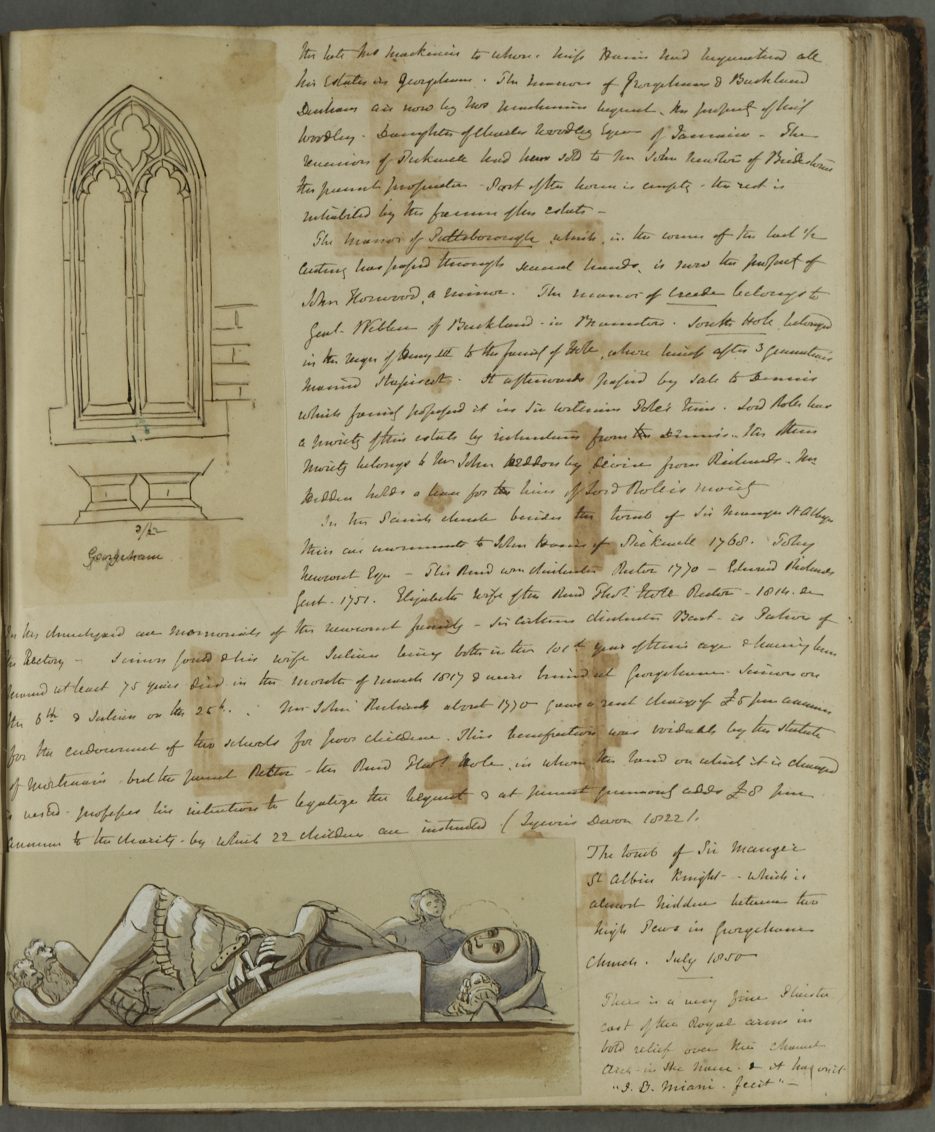 the late Mrs Mackinnin to whom Miss Harris had bequeathed all
his Estates in Georgeham. The manors of Georgeham & Buckland
Denham are now by Mrs bequest the property of Miss
Woodley. Daughter of Charles Woodley Esqre of Jamaica - The
mansion of Pickwell had been sold to Mr John Newton of
the present proprietor - Part of the house is empty - the rest is
inhabited by the farmer of the estate -
The Manor of Puttsborough which, in the course of the last 1/2
Century has passed through several hands, is now the property of
John Horwood, a minor. The manor of belongs to
Genl. Webber of Buckland - in Braunton. South Hole belonged
in the reign of Henry III to the family of Hole, whose heiress after 3 generations
married Stapiscot. It afterwards passed by sale to Dennis
which family possessed it in Sir William Pole's time. Lord Rolle has
a moiety of this estate by inheritance from the Dennis - the other
moiety belongs to Mr John Heddon by devise from Richards. Mr
Heddon holds a lease for the lives of Lord Rolle's moiety
In the Parish church besides the tomb of Sir Mauger St Albyn
there are monuments to John Harris of Pickwell 1768. Toby
Newcourt Esqr - The Revd Chichester Rector 1770 - Edward Richards
Gent. 1751. Elizabeth wife of the Revd Thos. Hole Rector - 1814.
In the churchyard are memorials of the Newcourt family - Sir Chichester Bart. is Patron of
the Rectory - Simon Gould & his wife Julian being both in the 101st year of their age & having been
married at least 75 years died in the month of March 1817 & were buried at Georgeham. Simon on
the 8th & Julian on the 25th. Mr John Richards about 1770 gave a rent charge of £5 per annum
for the endowment of two schools for poor children. This benefaction was voidable by the statute
of Mortmain - but the present Rector - the Revd Thos. Hole, in whom the land on which it is charged
is vested - professes his intention to legalize the bequest & at present adds £8 per
annum to the charity - by which 22 children are instructed. (Lysons's Devon 1822).
2/52
Georgeham
The tomb of Sir Mauger
St Albin Knight - which is
almost hidden between two
high Pews in Georgeham
Church. July 1850
There is a very fine Plaister
cast of the Royal arms in
bold relief over the Chancel
Arch - in the Nave - & it has writ
"J. B. Miani. fecit" -